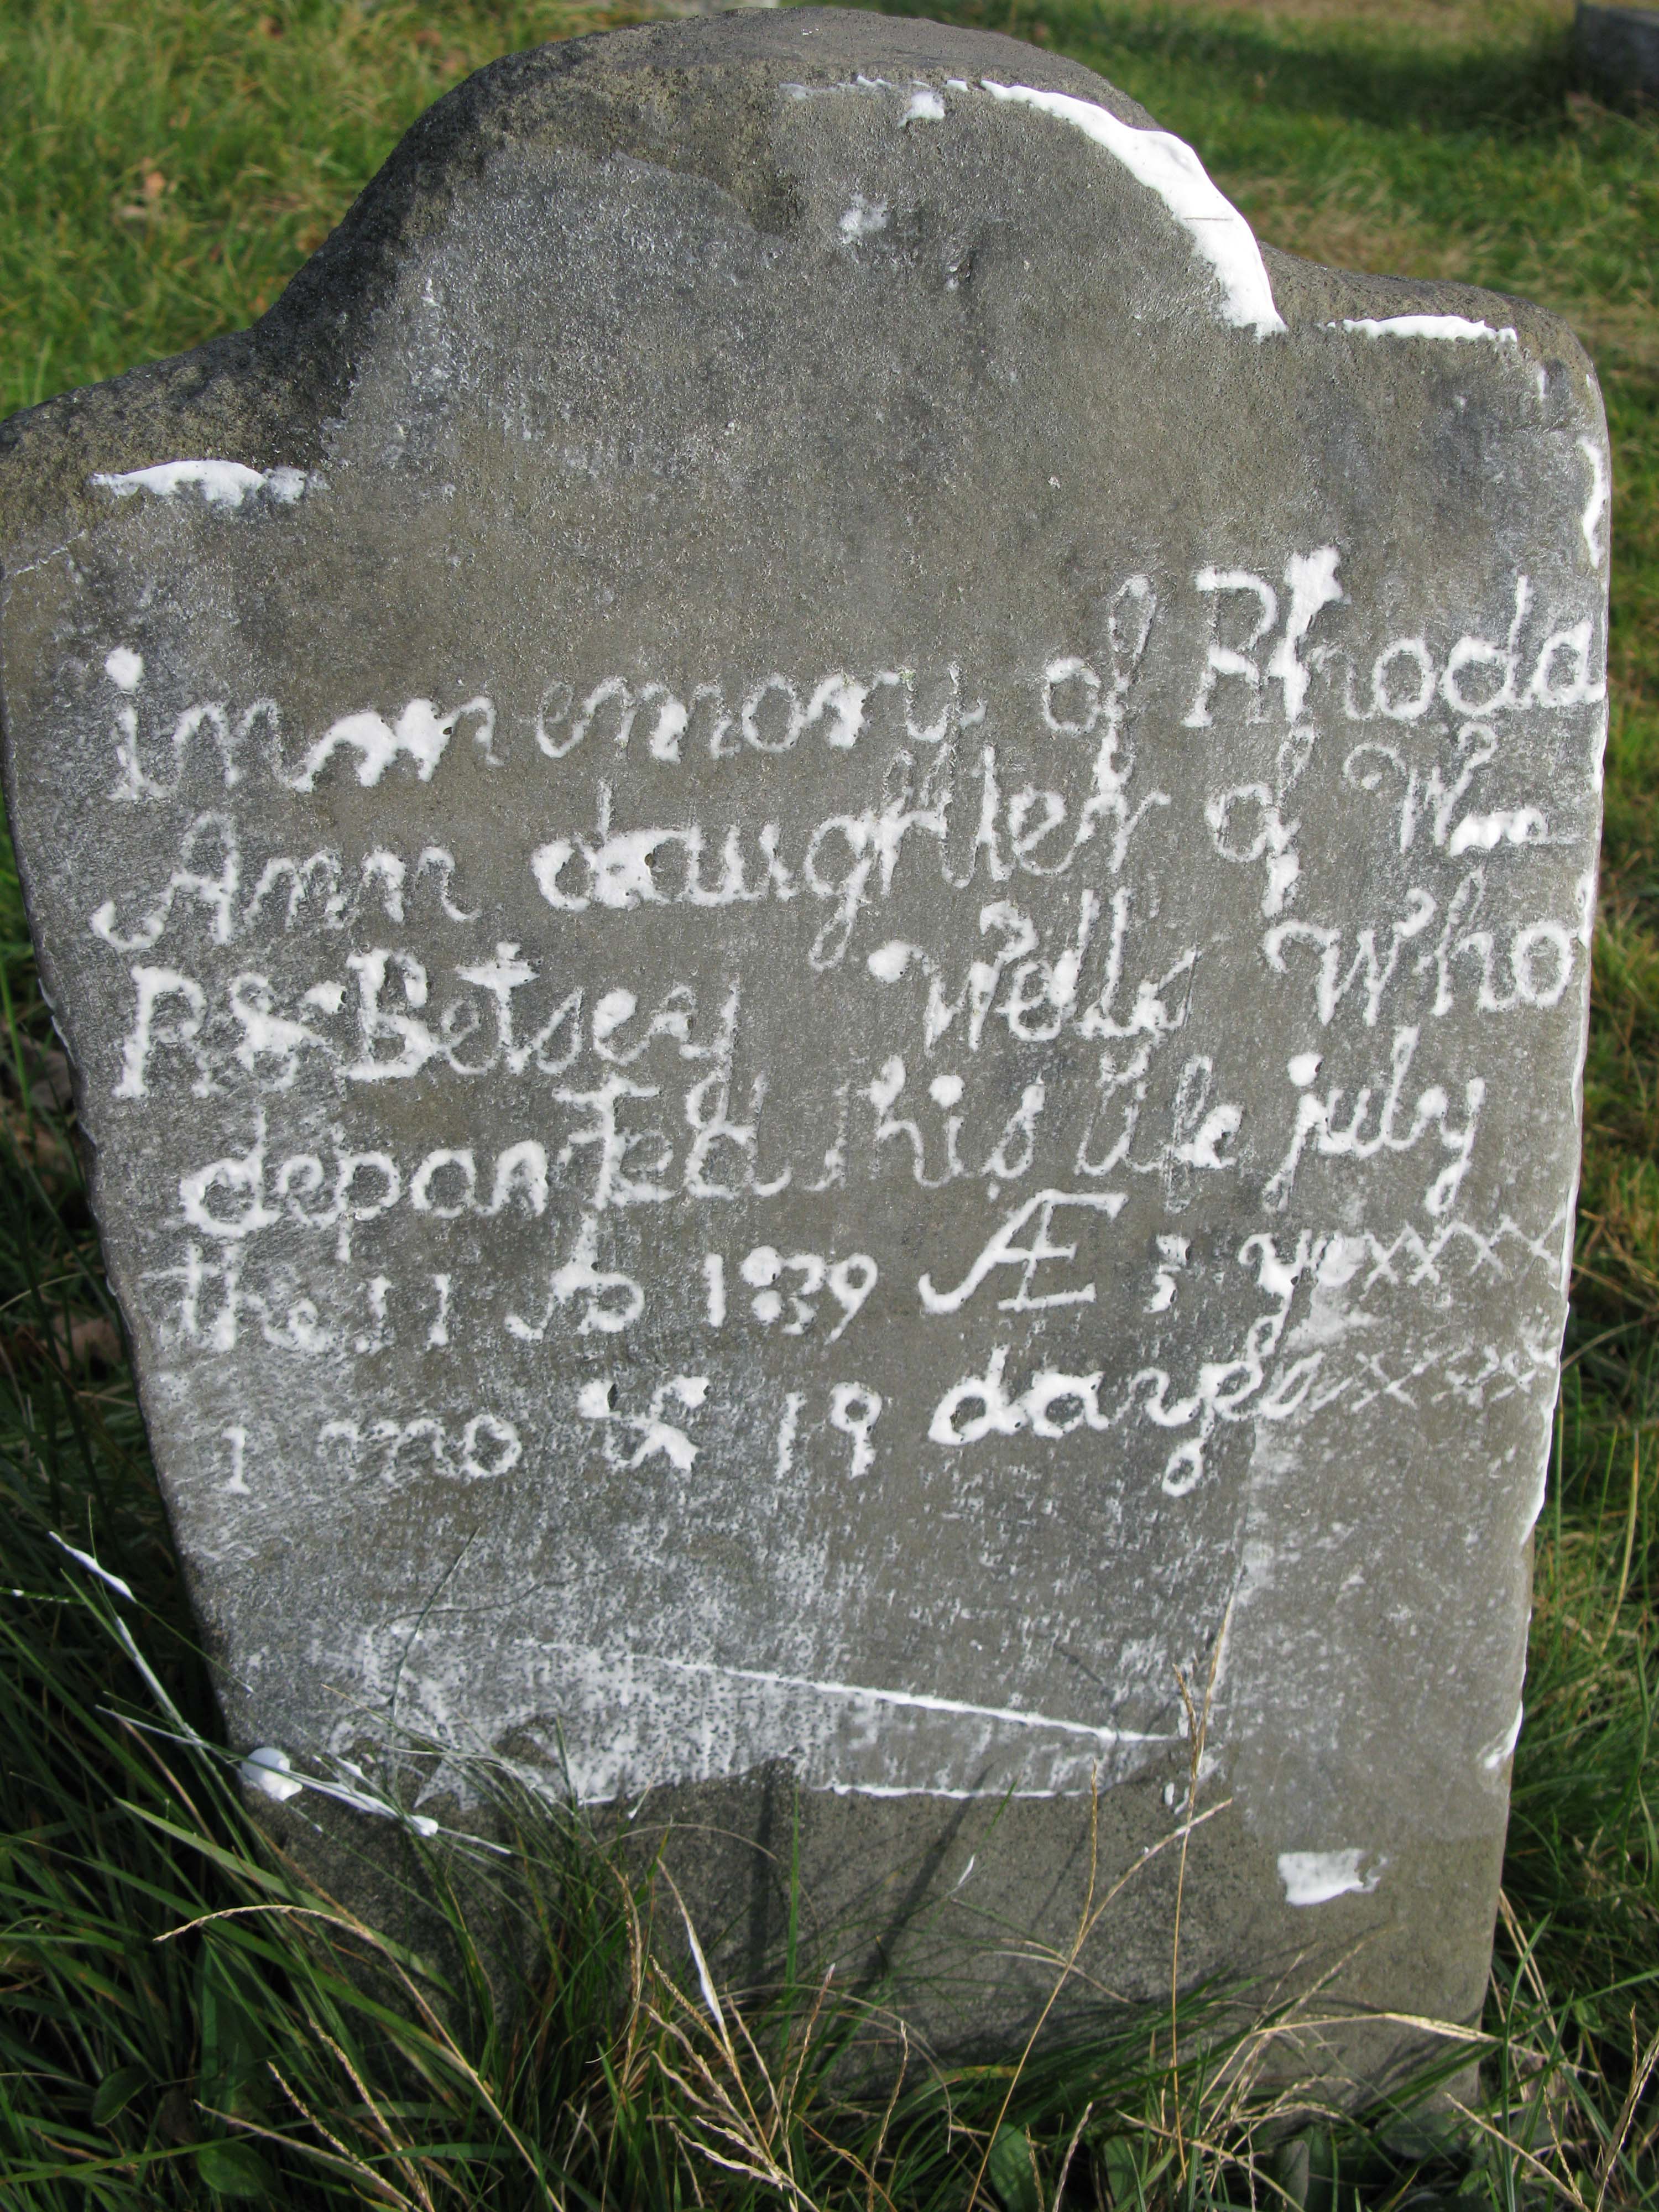 in memory of Rhoda
Ann daughter of Wm
R & Betsey Wells Who
departed this life july
the 11 AD 1839 Æ 3 yexxxx
1 mo & 19 daysxxxx